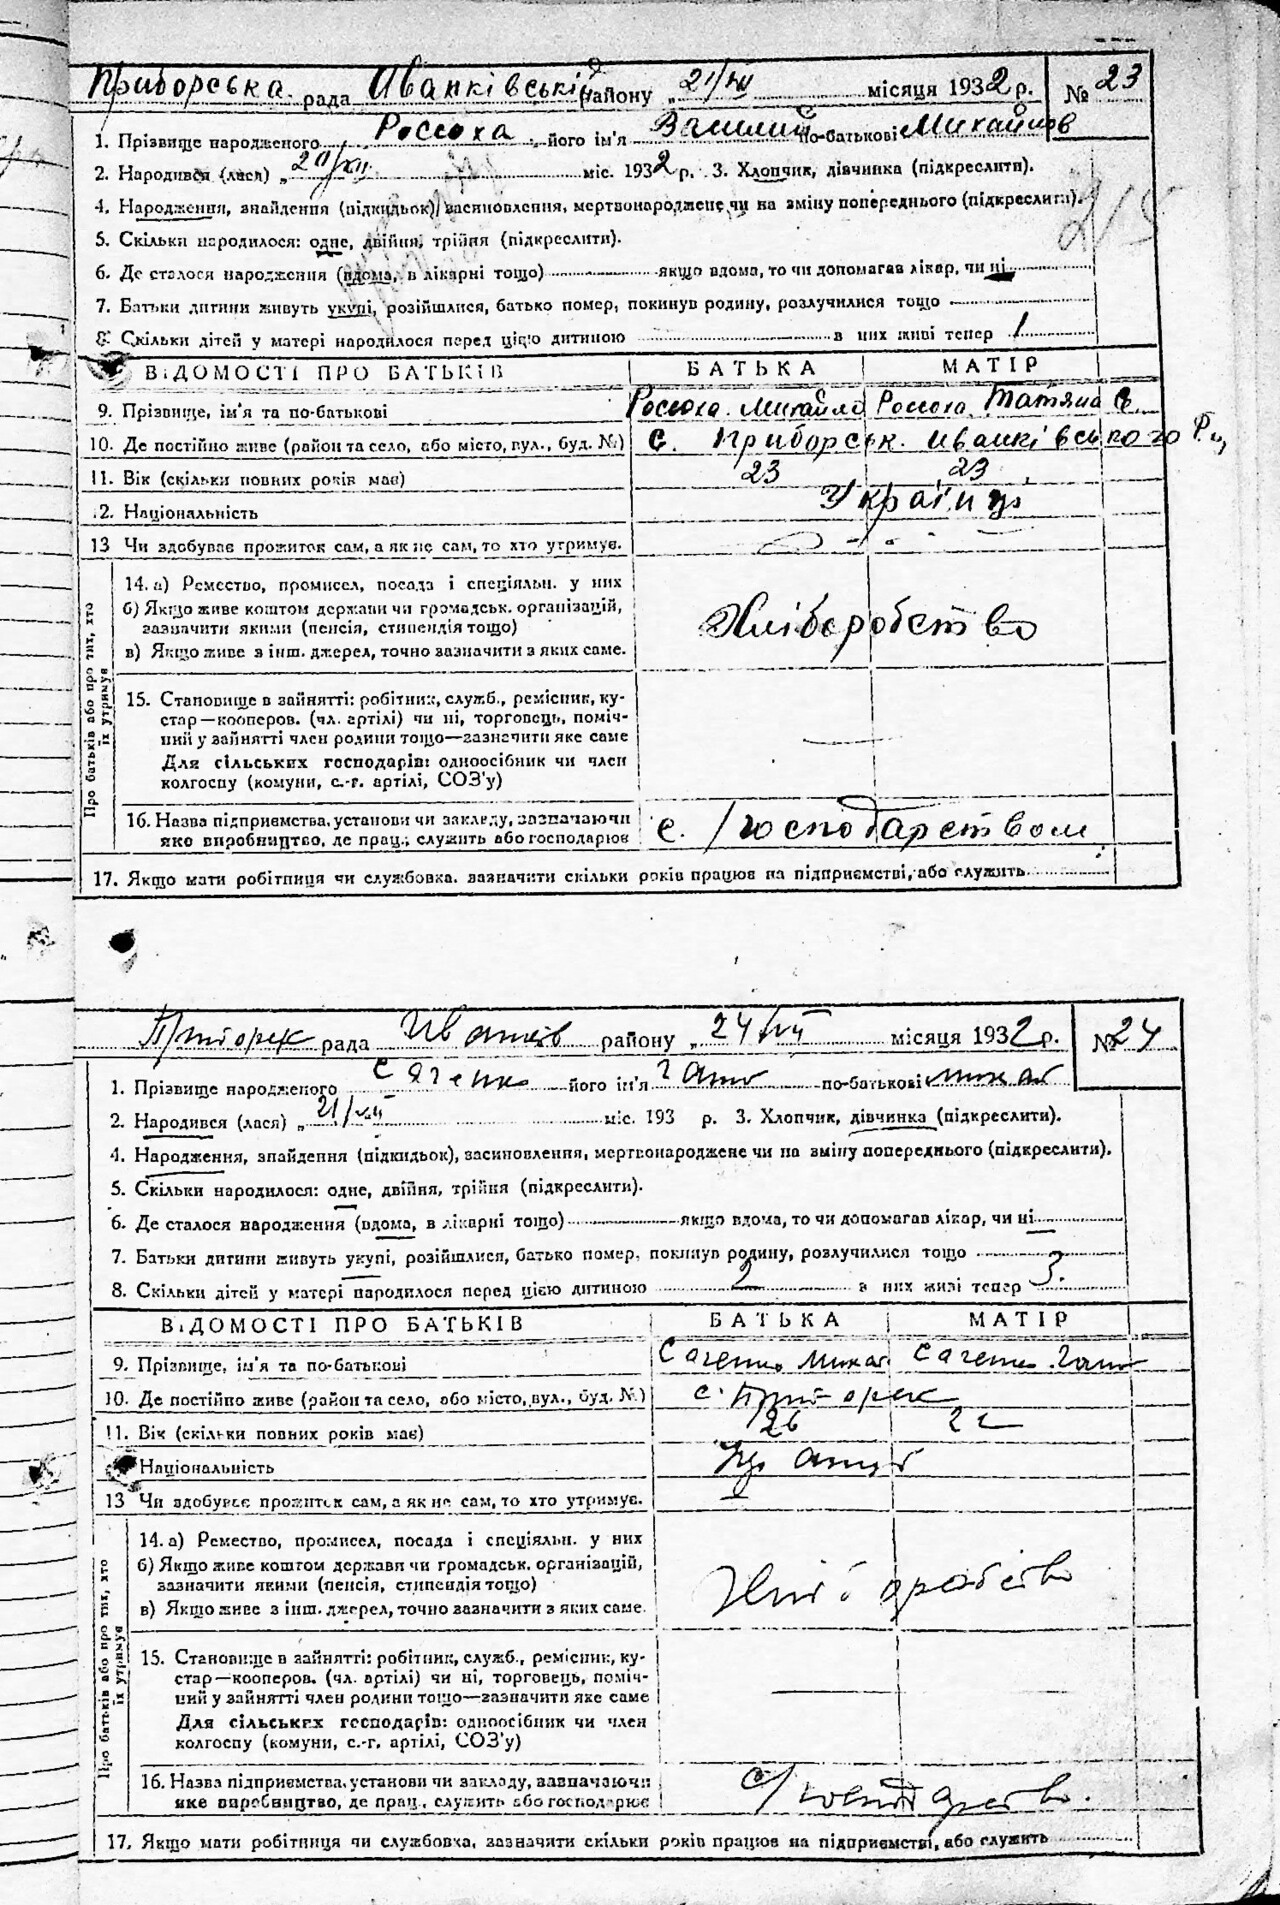 Приборська рада Иванківські району „21/VII місяця 1932 р. № 23
1. Прізвище народженого Россоха його ім'я Василий по-батькові Михайлов
2. Народився (лася) „ міс. 1932 р. 3. Хлопчик, дівчинка (підкреслити).
4. Народження, знайдення (підкидьок), засиновлення, мертвонароджене чи на зміну попереднього (підкреслити).
5. Скільки народилося: одне, двійня, трійня (підкреслити).
6. Де сталося народження (вдома, в лікарні тощо) якщо вдома, то чи допомагав лікар, чи ні
7. Батьки дитини живуть укупі, розійшлися, батько помер, покинув родину, розлучилися тощо
8. Скільки дітей у матері народилося перед цією дитиною з них живі тепер 1
ВІДОМОСТІ ПРО БАТЬКІВ БАТЬКА МАТІР
9. Прізвище, ім'я та по-батькові Россоха Михайло Россоха Татяна Є
10. Де постійно живе (район та село, або місто, вул., буд. №) с. Приборськ Иванківського Р.
11. Вік (скільки повних років має) 23 23
12. Національність Україці
13 Чи здобуває прожиток сам, а як не сам, то хто утримує.
Про батьків або про тих, хто їх утримує
14. а) Ремество, промисел, посада і спеціяльн. у них
б) Якщо живе коштом держави чи громадськ. організацій,
зазначити якими (пенсія, стипендія тощо)
в) Якщо живе з інш. джерел, точно зазначити з яких саме.
Хліборобство
15. Становище в зайнятті: робітник, служб., ремісник, ку-
стар—кооперов. (чл. артілі) чи ні, торговець, поміч-
ний у зайнятті член родини тощо—зазначити яке саме
Для сільських господарів: одноосібник чи член
колгоспу (комуни, с.-г. артілі, СОЗ'у)
16. Назва підприємства, установи чи закладу, зазначаючи
яке виробництво, де прац., служить або господарює
с. / господарством
17. Якщо мати робітниця чи службовка, зазначити скільки років працює на підприємстві, або служить
Приборск рада Иванків району „24/VII місяця 1932 р. № 24
1. Прізвище народженого його ім'я по-батькові
2. Народився (лася) „21/VII міс. 193 р. 3. Хлопчик, дівчинка (підкреслити).
4. Народження, знайдення (підкидьок), засиновлення, мертвонароджене чи на зміну попереднього (підкреслити).
5. Скільки народилося: одне, двійня, трійня (підкреслити).
6. Де сталося народження (вдома, в лікарні тощо) якщо вдома, то чи допомагав лікар, чи ні
7. Батьки дитини живуть укупі, розійшлися, батько помер, покинув родину, розлучилися тощо
8. Скільки дітей у матері народилося перед цією дитиною 2 з них живі тепер 3.
ВІДОМОСТІ ПРО БАТЬКІВ БАТЬКА МАТІР
9. Прізвище, ім'я та по-батькові
10. Де постійно живе (район та село, або місто, вул., буд. №) с. Приборск
11. Вік (скільки повних років має) 26
Національність
13 Чи здобуває прожиток сам, а як не сам, то хто утримує.
Про батьків або про тих, хто їх утримує
14. а) Ремество, промисел, посада і спеціяльн. у них
б) Якщо живе коштом держави чи громадськ. організацій,
зазначити якими (пенсія, стипендія тощо)
в) Якщо живе з інш. джерел, точно зазначити з яких саме.
Хліборобство
15. Становище в зайнятті: робітник, служб., ремісник, ку-
стар—кооперов. (чл. артілі) чи ні, торговець, поміч-
ний у зайнятті член родини тощо—зазначити яке саме
Для сільських господарів: одноосібник чи член
колгоспу (комуни, с.-г. артілі, СОЗ'у)
16. Назва підприємства, установи чи закладу, зазначаючи
яке виробництво, де прац., служить або господарює
с/господарство.
17. Якщо мати робітниця чи службовка, зазначити скільки років працює на підприємстві, або служить